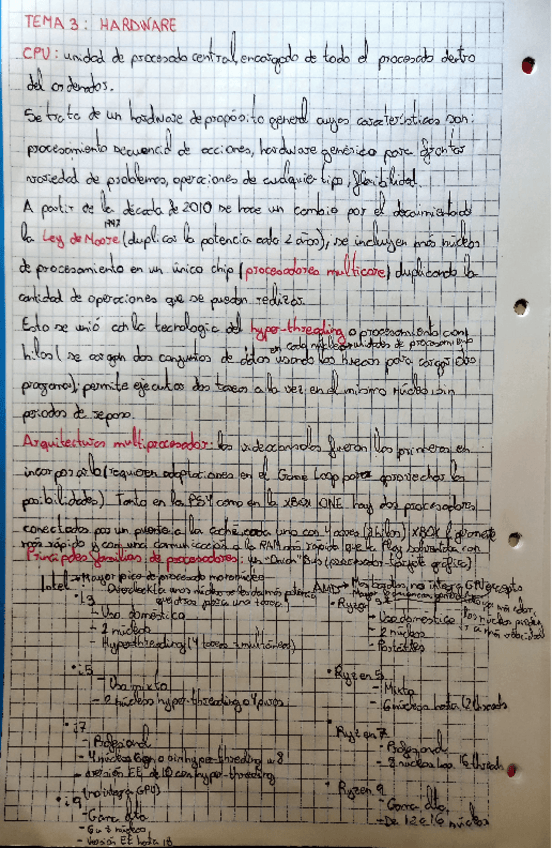 TEMA 3: HARDWARE
CPU: unidad de procesado central, encargado de todo el procesado dentro
del ordenador.
Se trata de un hardware de propósito general cuyas características son:
procesamiento secuencial de acciones, hardware genérico para afrontar
variedad de problemas, operaciones de cualquier tipo, flexibilidad.
A partir de la década de 2010 se hace un cambio por el decaimiento de
la Ley de Moore (duplicar la potencia cada 2 años), se incluyen más núcleos
de procesamiento en un único chip (procesadores multicore) duplicando la
cantidad de operaciones que se pueden realizar.
Esto se unió con la tecnología del hyper-threading o procesamiento con
hilos (se cargan dos conjuntos de datos usando los huecos para cargar dos
programas); permite ejecutar dos tareas a la vez en el mismo núcleo sin
periodos de reposo.
Arquitectura multiprocesador: las videoconsolas fueron las primeras en
incorporarlo (requieren adaptaciones en el Game Loop para aprovechar las
posibilidades). Tanto en la PS4 como en la XBOX ONE hay dos procesadores
conectados por un puerto a la caché, cada uno con 4 cores (2 hilos)
más rápido y con una comunicación a la RAM más rápido que la Play
Principales familias de procesadores:
Intel - Mayor pico de procesado mononúcleo
AMD
· i3
- Uso doméstico
- 2 núcleos
- Hyperthreading (4 tareas simultáneas)
· i5
- Uso mixto
- 2 núcleos hyper-threading o 4 puros
· i7
- Profesional
- 4 núcleos 6 con o sin hyper-threading u 8
- versión EE de 10 con hyper-threading
(no integra GPU)
· i9
- Gama alta
- 6 u 8 núcleos
- Versión EE hasta 18
· Ryzen 3
- Uso doméstico
- 2 núcleos
- Portátiles
· Ryzen 5
- Mixto
- 6 núcleos hasta 12 threads
· Ryzen 7
- Profesional
- 8 núcleos 16 threads
· Ryzen 9
- Gama alta
- De 12 a 16 núcleos